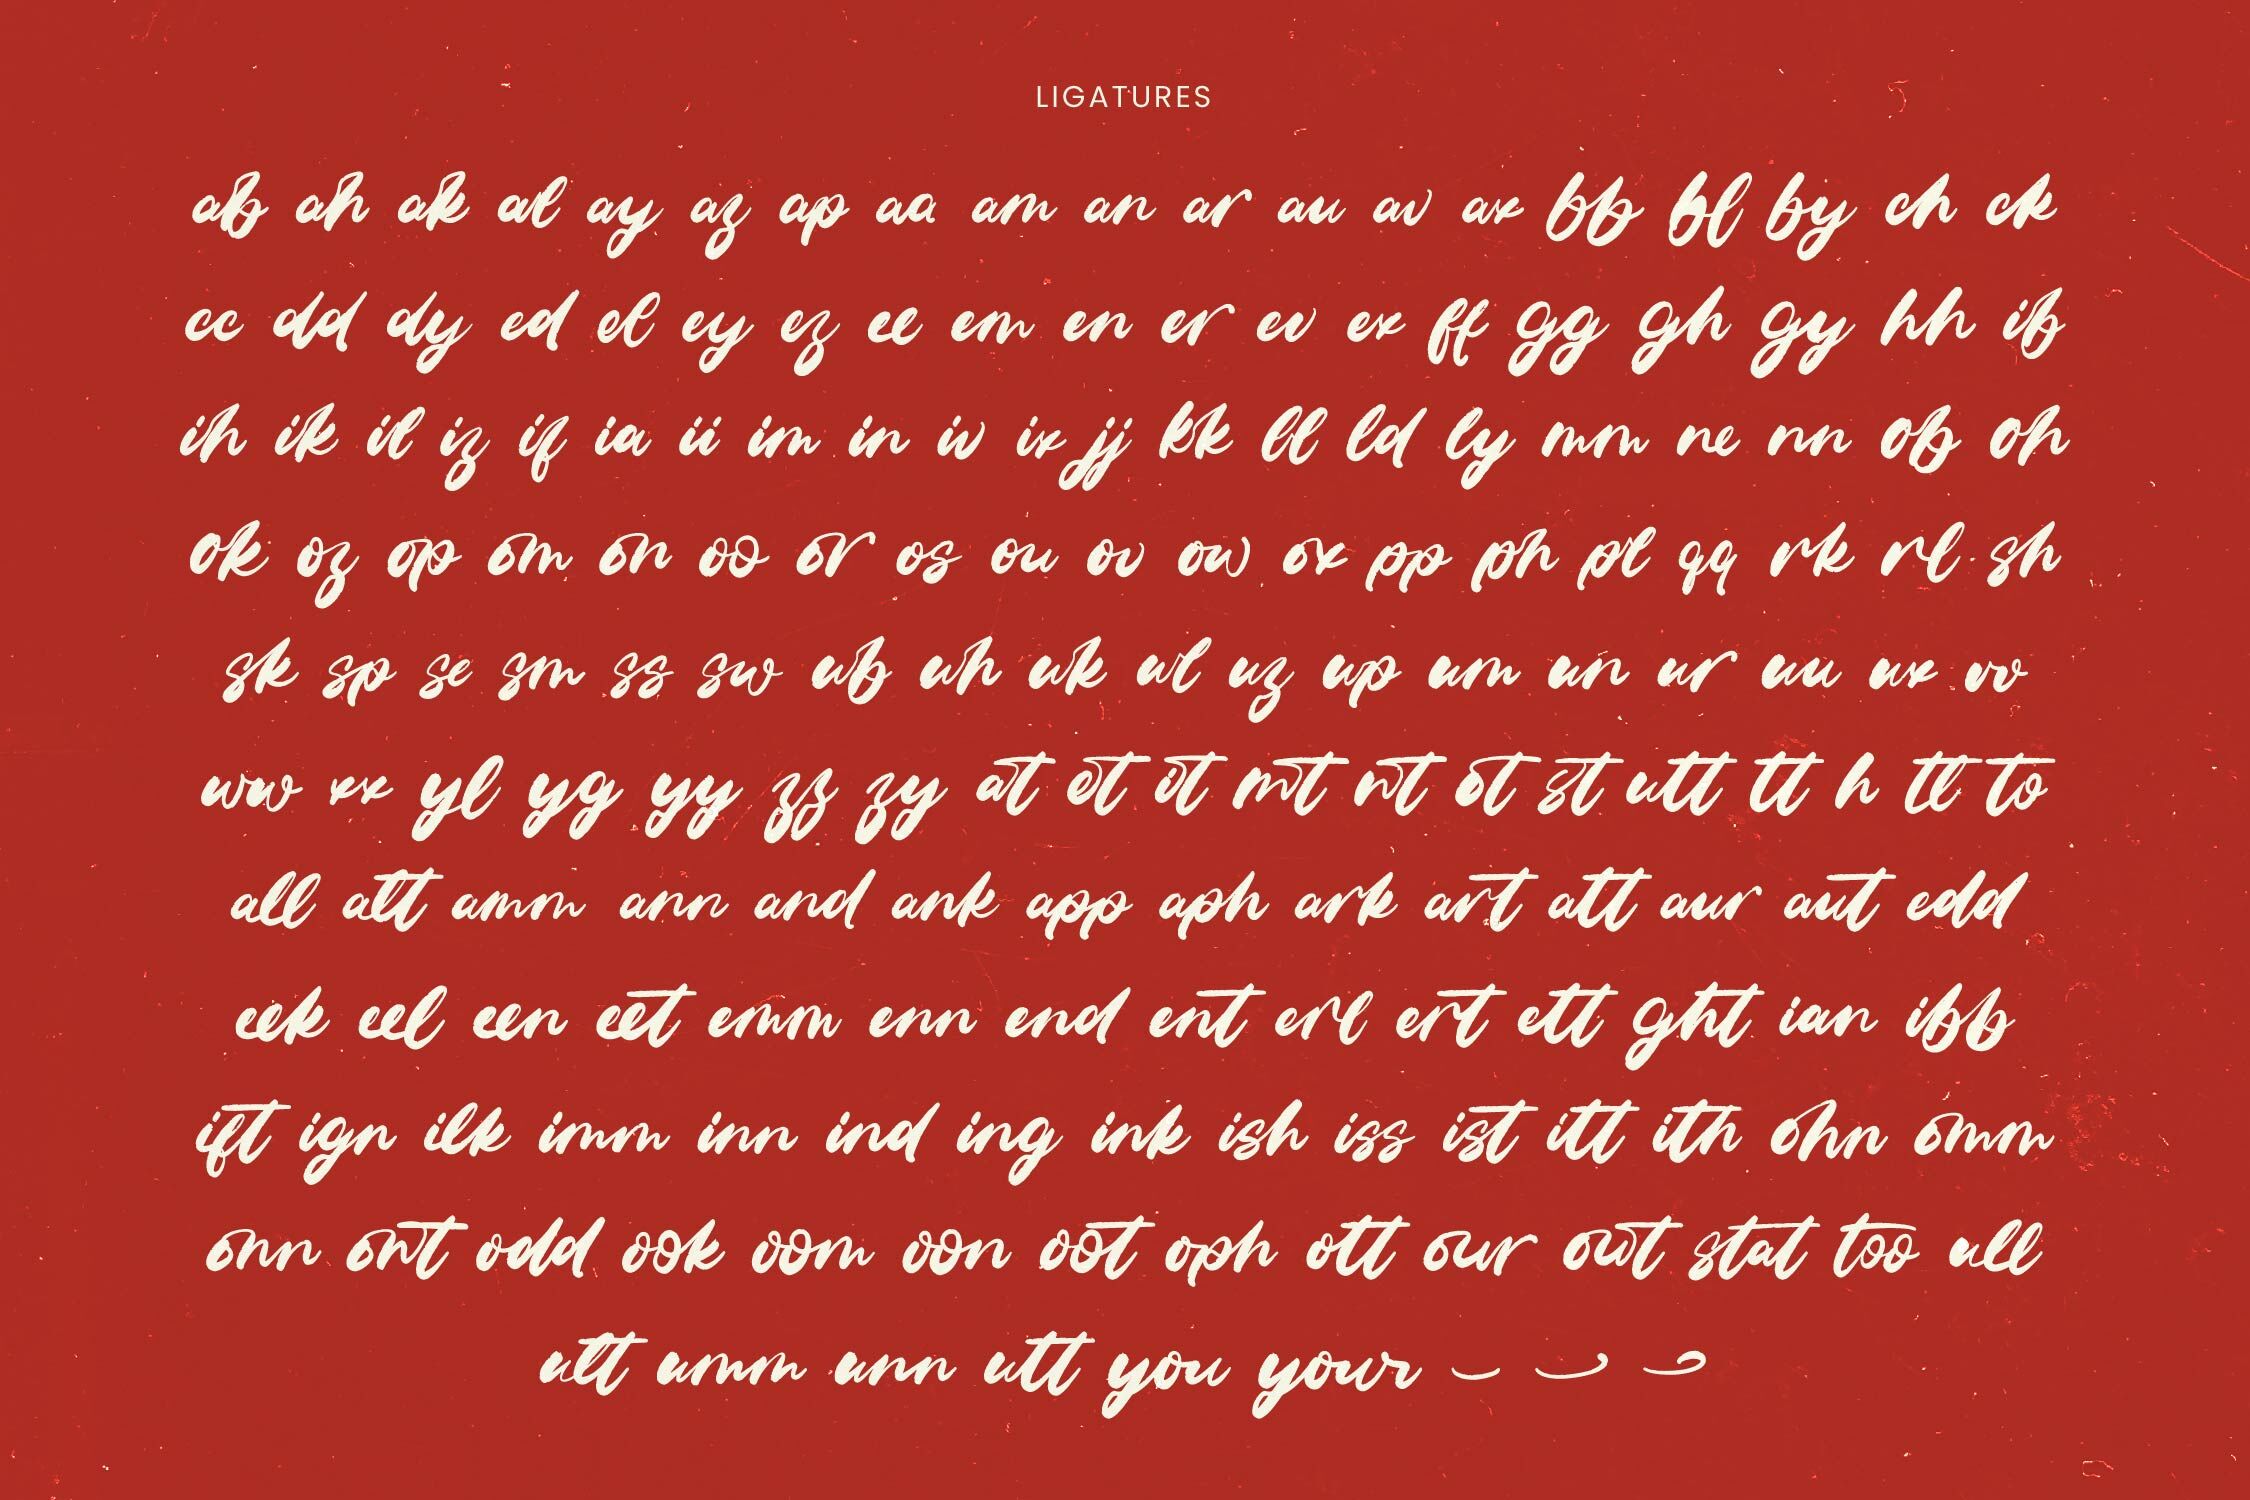 LIGATURES
ab ah ak al ay az ap aa am an ar au av ax bb bl by ch ck
cc dd dy ed el ey ez ee em en er ev ex ff gg gh gy hh ib
ih ik il iz if ia ii im in iv ix jj kk ll ld ly mm ne nn ob oh
ok oz op om on oo or os ou ov ow ox pp ph pl qq rk rl sh
sk sp se sm ss sw ub uh uk ul uz up um un ur uu ux vv
ww xx yl yg yy zz zy at et it mt nt ot st utt tt h tl to
all alt amm ann and ank app aph ark art att aur aut edd
eek eel een eet emm enn end ent erl ert ett ght ian ibb
ift ign ilk imm inn ind ing ink ish iss ist itt ith ohn omm
onn ont odd ook oom oon oot oph ott our out stat too ull
ult umm unn utt you your